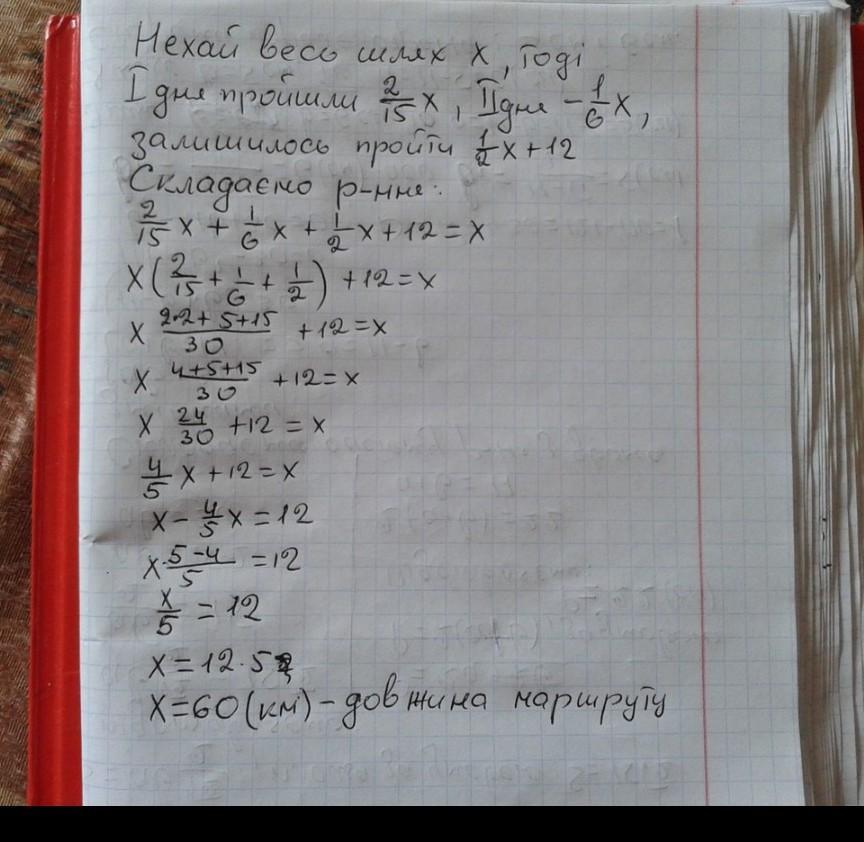 Нехай весь шлях x, тоді
I дня пройшли 2/15 x, II дня – 1/6 x,
залишилось пройти 1/2 x + 12
Складаємо р-ння:
2/15 x + 1/6 x + 1/2 x + 12 = x
x(2/15 + 1/6 + 1/2) + 12 = x
x (2·2+5+15)/30 + 12 = x
x (4+5+15)/30 + 12 = x
x 24/30 + 12 = x
4/5 x + 12 = x
x – 4/5 x = 12
x · (5–4)/5 = 12
x/5 = 12
x = 12·5
x = 60 (км) – довжина маршруту